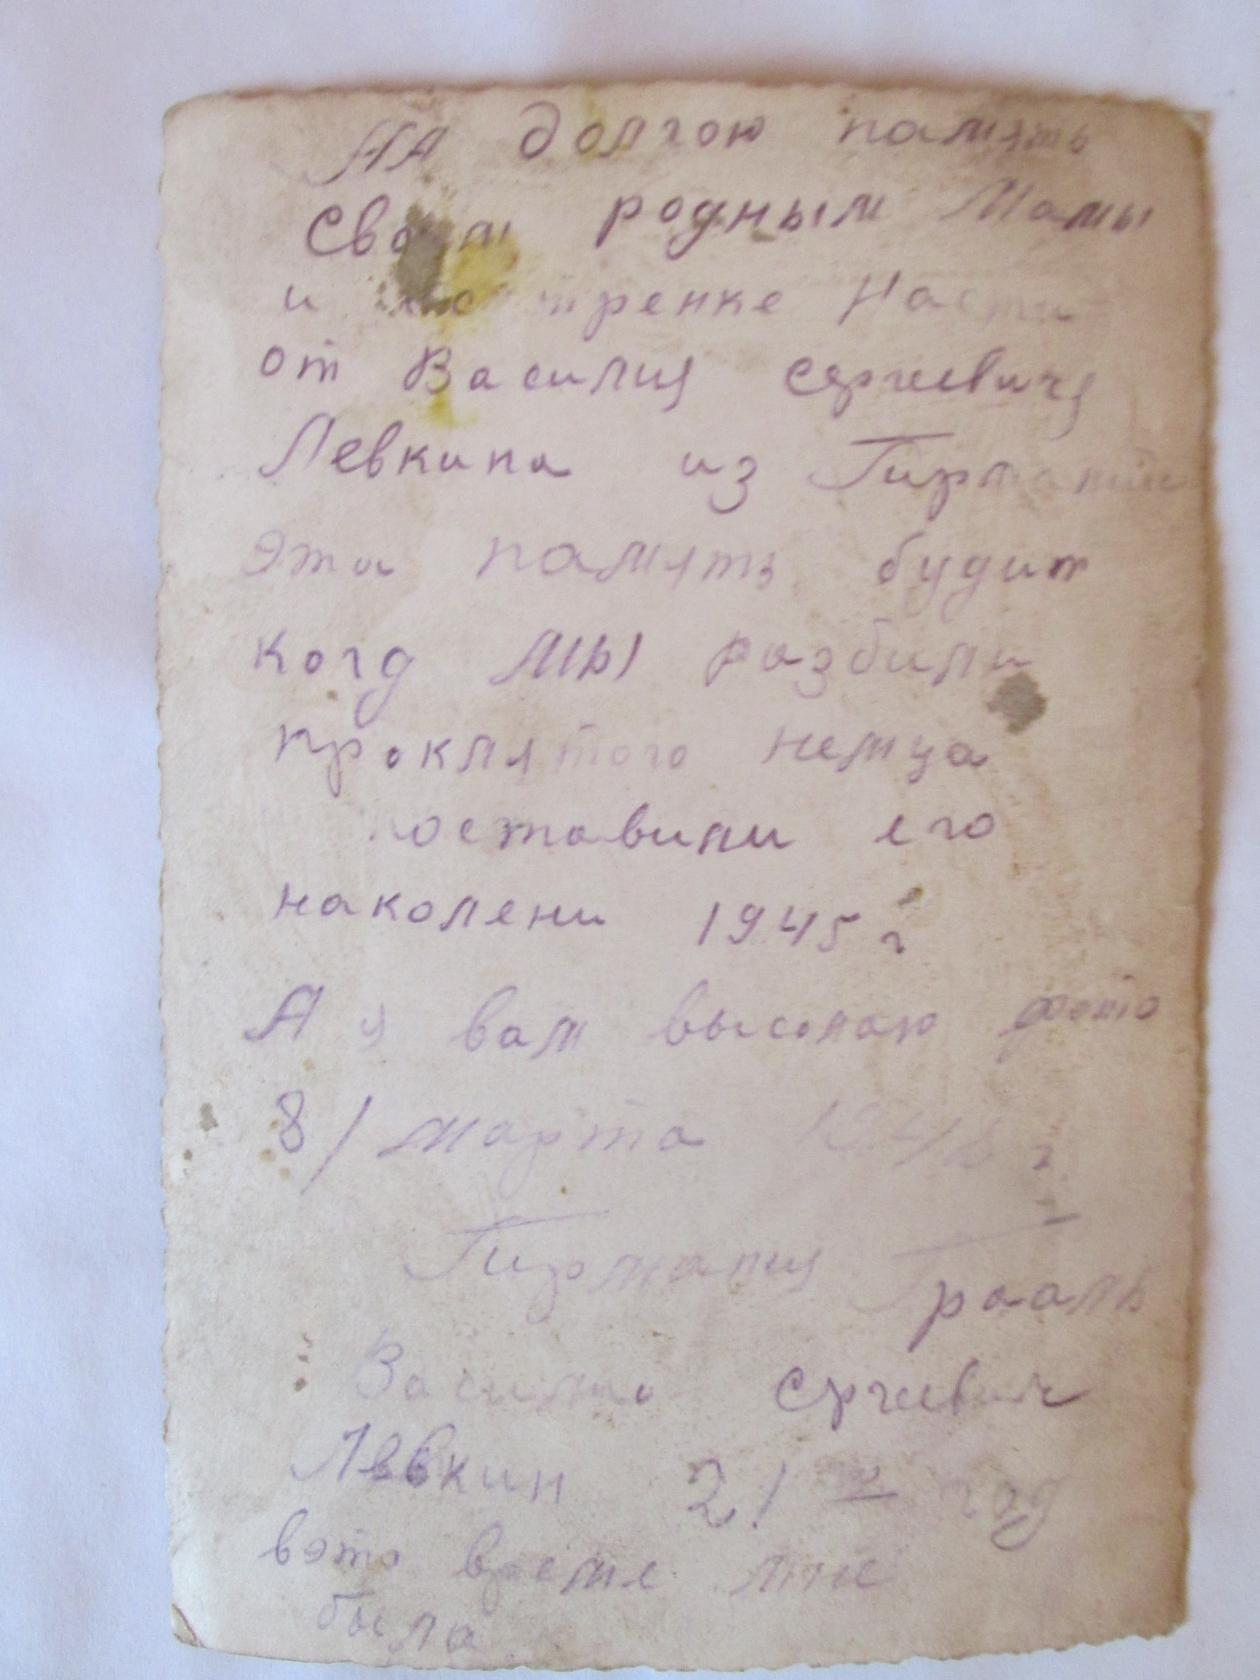 НА долгою память
родным Мамы
и Насти
от Василия Сергиевича
Левкина из Гирмании
эта память будит
когд мы разбили
проклятого немца
поставили его
наколени 1945 г
А я вам высолаю фото
8/ марта г
Гирмания Грааль
Василия Сргиевич
Левкин 21 й год
вэто време мне
была